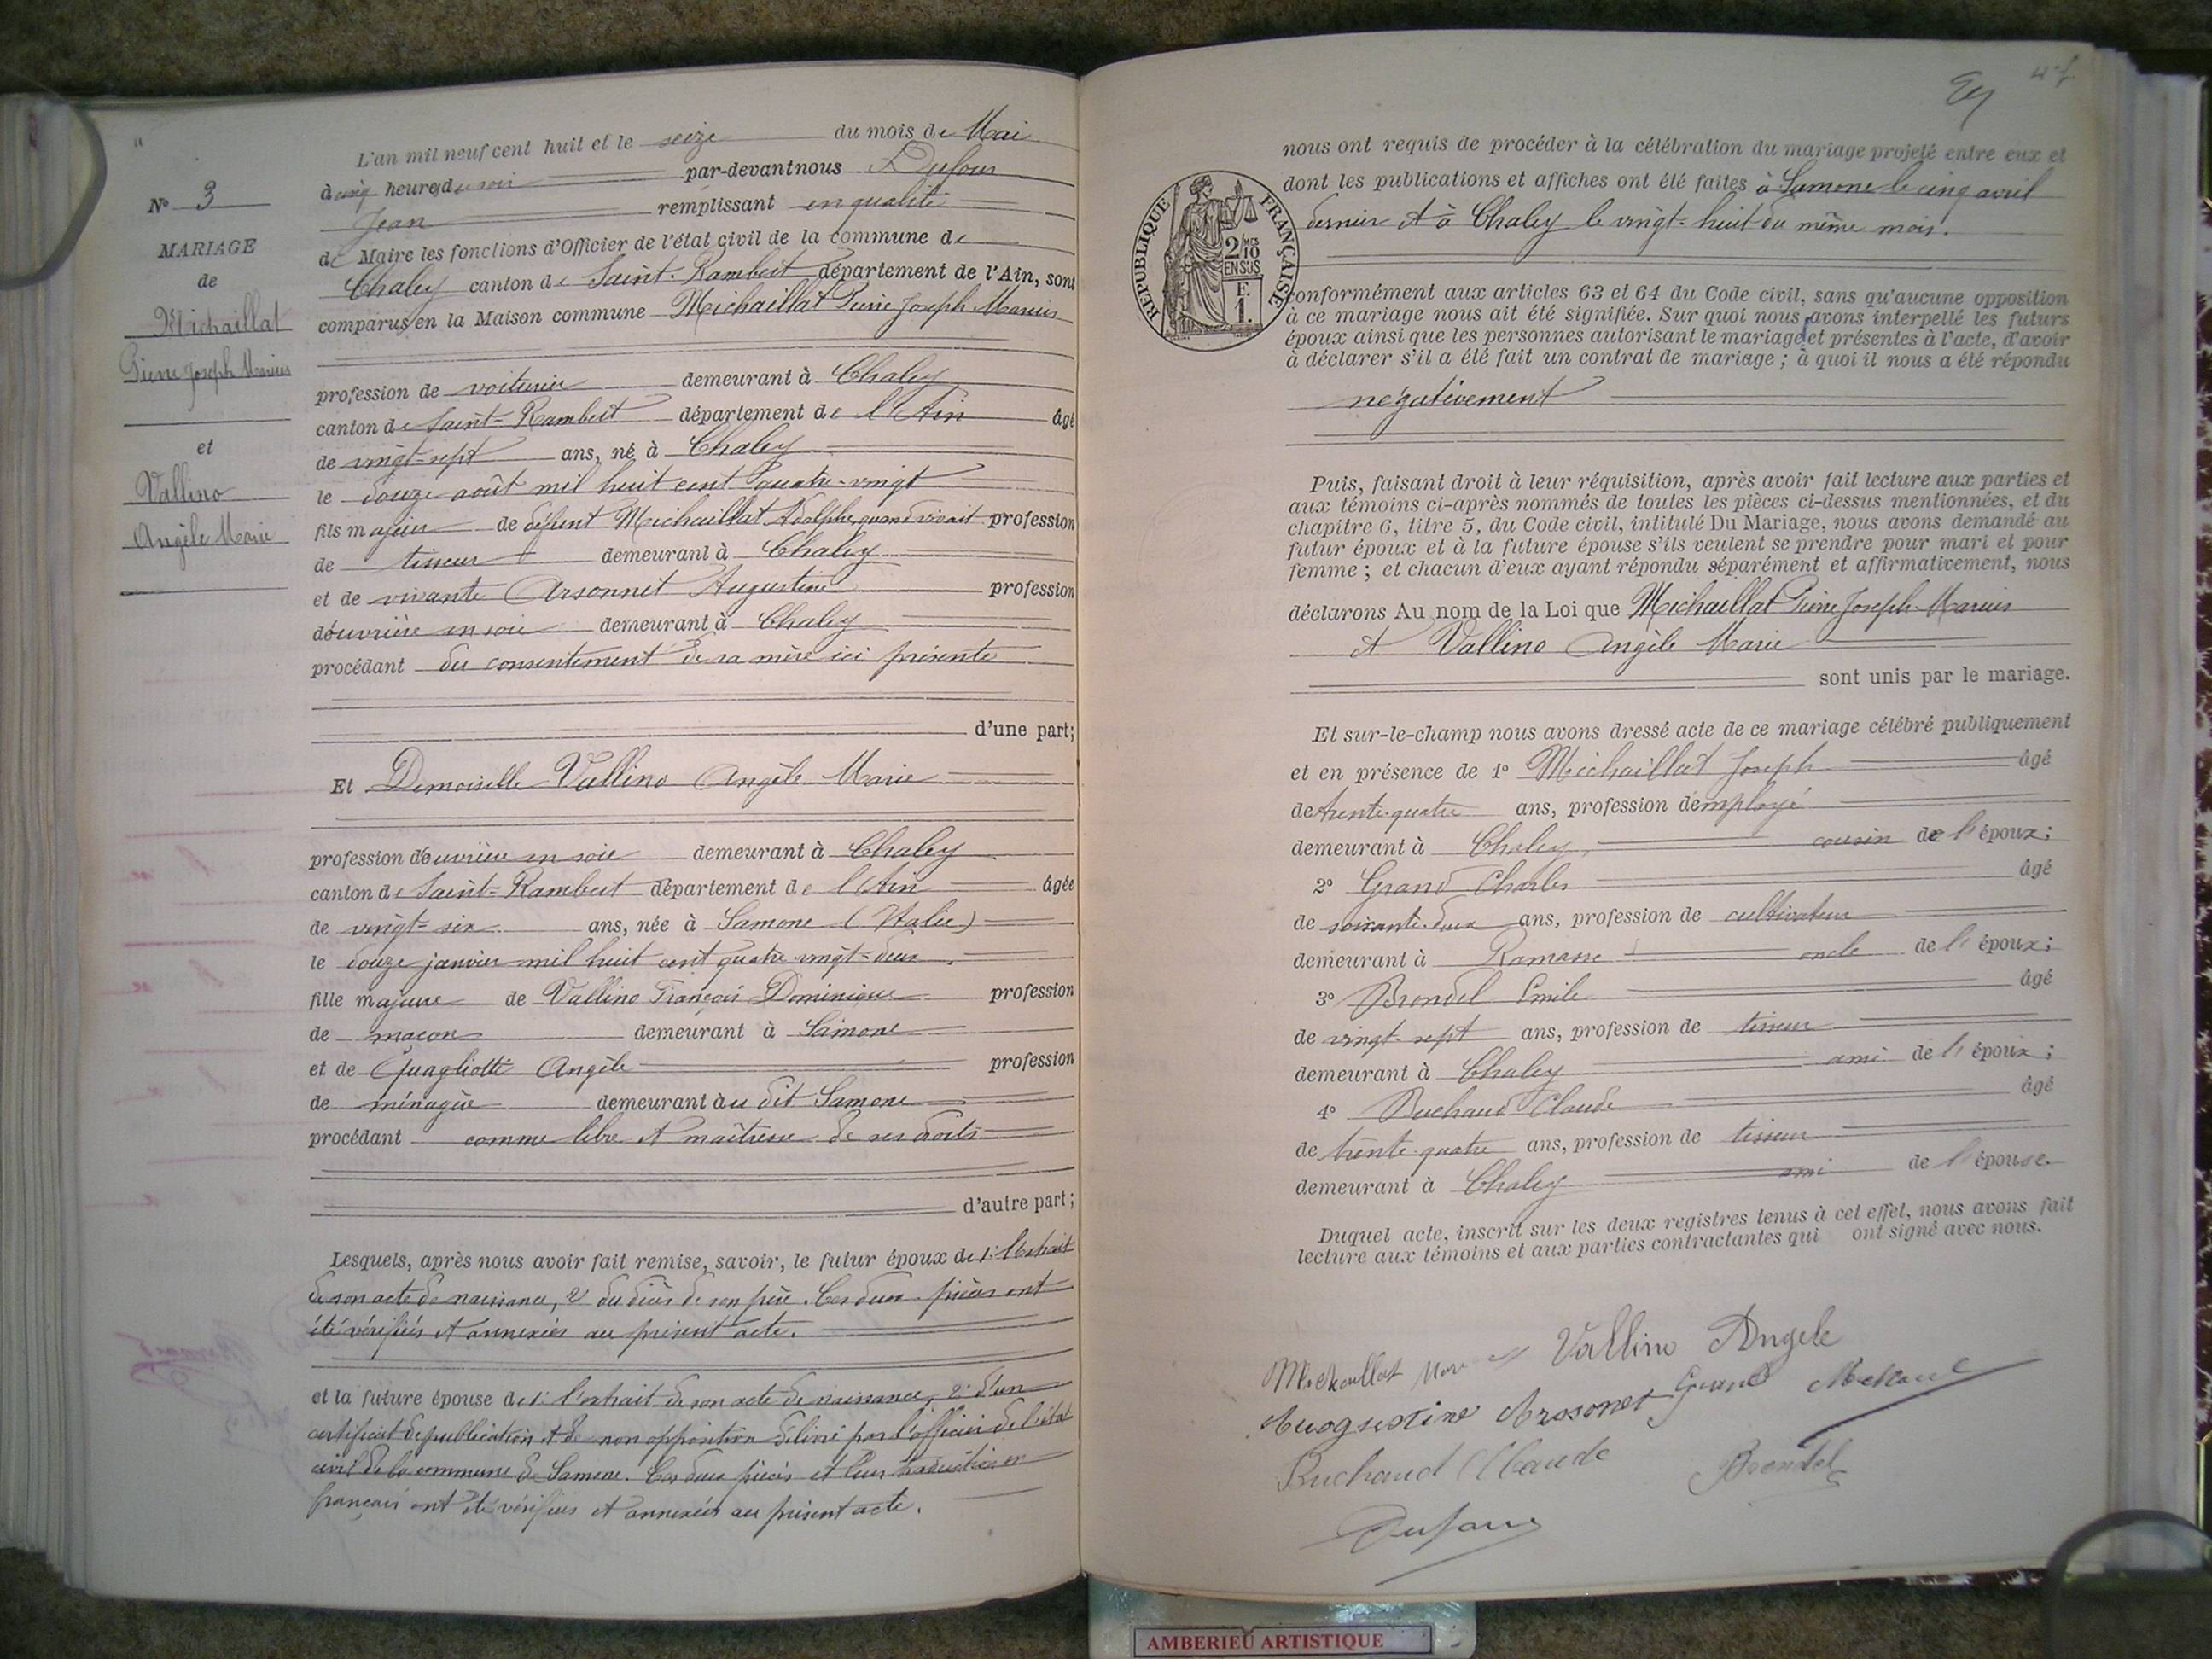 L'an mil neuf cent huit et le seize du mois de Mai
à cinq heures du soir par-devant nous Dufour
Jean remplissant en qualité
de Maire les fonctions d'Officier de l'état civil de la commune de
Chaley canton de Saint-Rambert département de l'Ain, sont
comparus en la Maison commune Michaillat Pierre Joseph Marius
profession de voiturier demeurant à Chaley
canton de Saint-Rambert département de l'Ain âgé
de vingt-sept ans, né à Chaley
le douze août mil huit cent quatre-vingt
fils majeur de défunt Michaillat Adolphe, quand vivait profession
de tisseur demeurant à Chaley
et de vivante Arsonnet Augustine profession
d'ouvrière en soie demeurant à Chaley
procédant du consentement de sa mère ici présente
d'une part;
Et Demoiselle Vallino Angèle Marie
profession d'ouvrière en soie demeurant à Chaley
canton de Saint-Rambert département de l'Ain âgée
de vingt-six ans, née à Samone (Italie)
le douze janvier mil huit cent quatre vingt-deux.
fille majeure de Vallino François Dominique profession
de maçon demeurant à Samone
et de Quagliotti Angèle profession
de ménagère demeurant au dit Samone
procédant comme libre et maîtresse de ses droits
d'autre part;
Lesquels, après nous avoir fait remise, savoir, le futur époux de 1° l'extrait
de son acte de naissance, 2° du décès de son père. Ces deux pièces ont
été vérifiées et annexées au présent acte.
et la future épouse de 1° l'extrait de son acte de naissance, 2° d'un
certificat de publication et de non opposition délivré par l'officier de l'état
civil de la commune de Samone. Ces deux pièces et leur traduction en
français ont été vérifiées et annexées au présent acte.
N° 3
MARIAGE
de
Michaillat
Pierre Joseph Marius
et
Vallino
Angèle Marie
nous ont requis de procéder à la célébration du mariage projeté entre eux et
dont les publications et affiches ont été faites à Samone le cinq avril
dernier et à Chaley le vingt-huit du même mois.
RÉPUBLIQUE FRANÇAISE
2/10
EN SUS
F.
1.
conformément aux articles 63 et 64 du Code civil, sans qu'aucune opposition
à ce mariage nous ait été signifiée. Sur quoi nous avons interpellé les futurs
époux ainsi que les personnes autorisant le mariage et présentes à l'acte, d'avoir
à déclarer s'il a été fait un contrat de mariage; à quoi il nous a été répondu
négativement
Puis, faisant droit à leur réquisition, après avoir fait lecture aux parties et
aux témoins ci-après nommés de toutes les pièces ci-dessus mentionnées, et du
chapitre 6, titre 5, du Code civil, intitulé Du Mariage, nous avons demandé au
futur époux et à la future épouse s'ils veulent se prendre pour mari et pour
femme; et chacun d'eux ayant répondu séparément et affirmativement, nous
déclarons Au nom de la Loi que Michaillat Pierre Joseph Marius
et Vallino Angèle Marie
sont unis par le mariage.
Et sur-le-champ nous avons dressé acte de ce mariage célébré publiquement
et en présence de 1° Michaillat Joseph âgé
de trente-quatre ans, profession d'employé
demeurant à Chaley, cousin de l'époux;
2° Grand Charles âgé
de soixante-deux ans, profession de cultivateur
demeurant à Ramasse oncle de l'époux;
3° Brondel Emile âgé
de vingt-sept ans, profession de tisseur
demeurant à Chaley ami de l'époux;
4° Buchaud Claude âgé
de trente-quatre ans, profession de tisseur
demeurant à Chaley ami de l'épouse
Duquel acte, inscrit sur les deux registres tenus à cet effet, nous avons fait
lecture aux témoins et aux parties contractantes qui ont signé avec nous.
Michaillat Vallino Angele
Auogustine Arosonet Grand
Buchaud Claude Brondel
Dufour
AMBERIEU ARTISTIQUE